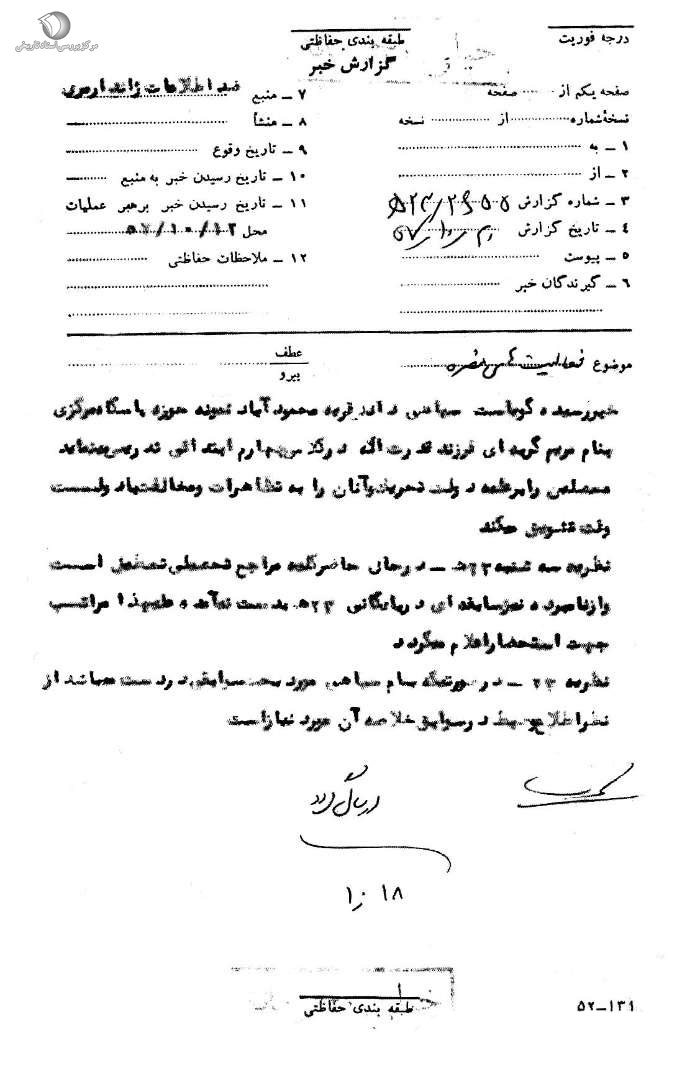 مرکز بررسی اسناد تاریخی
درجه فوریت
طبقه بندی حفاظتی
گزارش خبر
صفحه یکم از صفحه
نسخه شماره از نسخه
۱ ــ به
۲ ــ از
۳ ــ شماره گزارش
۴ ــ تاریخ گزارش
۵ ــ پیوست
۶ ــ گیرندگان خبر
۷ ــ منبع ضد اطلاعات ژاندارمری
۸ ــ منشأ
۹ ــ تاریخ وقوع
۱۰ ــ تاریخ رسیدن خبر به منبع
۱۱ ــ تاریخ رسیدن خبر برهبر عملیات
محل ۵۷/۱۰/۱۲
۱۲ ــ ملاحظات حفاظتی
موضوع فعالیت های مضره
عطف
پیرو
خبر رسیده گویاست سپاهی دانش قریه محمود آباد نمونه حوزه پاسگاه مرکزی
بنام مریم فرزند قدرت اله در کلاس چهارم ابتدائی تدریس مینماید
محصلین را بر علیه دولت تحریک و آنان را به تظاهرات و مخالفت با دولت
وقت تشویق میکند
نظریه سه شنبه ۲۳ هـ ــ در حال حاضر کلیه مراجع تحصیلی تعطیل است
و از نامبرده نیز سابقه ای در بایگانی ۲۳ هـ بدست نیامد و علیهذا مراتب
جهت استحضار اعلام میگردد
نظریه ۲۳ ــ در صورتیکه نام سپاهی مورد بحث درست میباشد از
نظر اطلاع و ضبط در سوابق خلاصه آن مورد نیاز است
ارسال گردد
۱۸
طبقه بندی حفاظتی
۵۲ــ۱۳۱